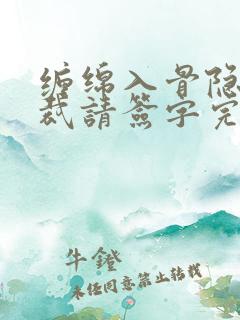 缠绵入骨隐
裁請簽字完
牛鐙
未经同意禁止转载